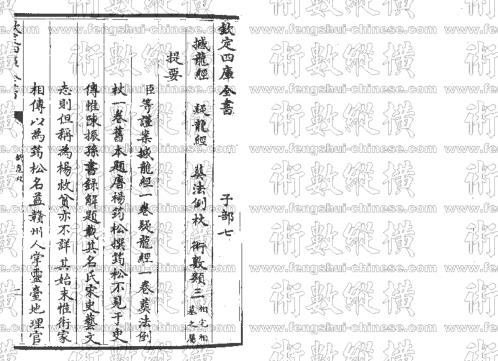 欽定四庫全書
子部七
撼龍經 疑龍經 葬法倒杖 術數類三相宅相墓之屬
提要
臣等謹案撼龍經一卷疑龍經一卷葬法倒
杖一卷舊本題唐楊筠松撰筠松不見于史
傳惟陳振孫書錄解題載其名氏宋史藝文
志則但稱為楊救貧亦不詳其始末惟術家
相傳以為筠松名益贛州人掌靈臺地理官
術數縱橫
www.fengshui-chinese.com